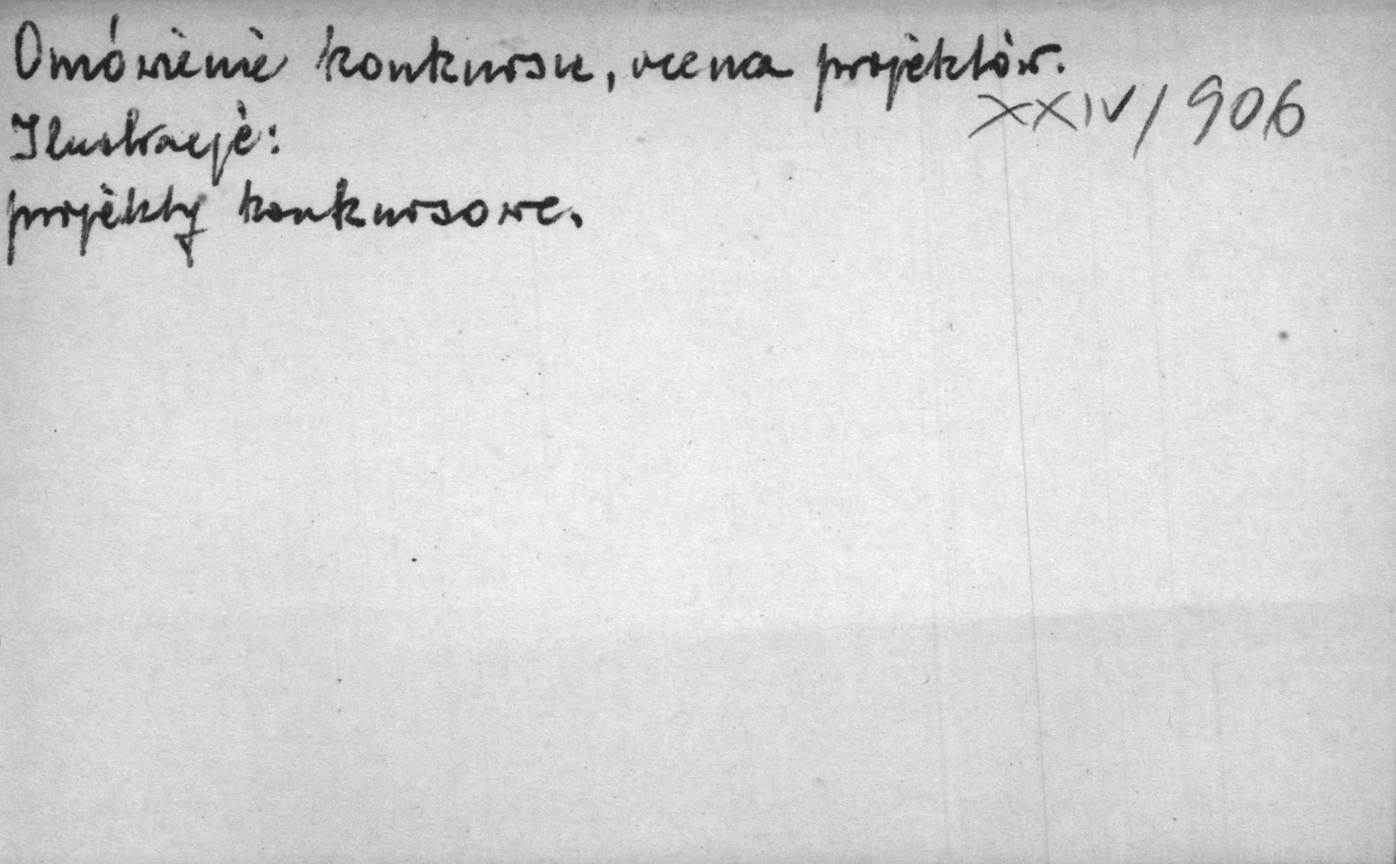 Omówienie konkursu, ocena projektów.
XXIV/906
Ilustracje:
projekty konkursowe.